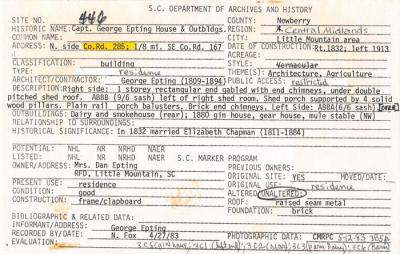 S.C. DEPARTMENT OF ARCHIVES AND HISTORY
SITE NO. 446 COUNTY: Newberry
HISTORIC NAME: Capt. George Epting House & Outbldgs. REGION: Central Midlands
COMMON NAME: CITY: Little Mountain area
ADDRESS: N. side Co.Rd. 285; 1/8 mi. SE Co.Rd. 167 DATE OF CONSTRUCTION: Rt.1832; left 1913
CLASSIFICATION: building ACCESS:
TYPE: residence STYLE: Vernacular
THEME(S): Architecture, Agriculture
ARCHITECT/CONTRACTOR: George Epting (1809-1894) PUBLIC ACCESS: restricted
DESCRIPTION: Right side: 1 storey rectangular end gabled with end chimneys, under double
pitched shed roof. ABBB (9/6 sash) left of right shed room. Shed porch supported by 4 solid
wood pillars. Plain rail porch balusters. Brick end chimneys. Left Side: ABBA(6/6 sash) OVER
OUTBUILDINGS: Dairy and smokehouse (rear); 1880 gin house, gear house, mule stable (NW)
RELATIONSHIP TO SURROUNDINGS:
HISTORICAL SIGNIFICANCE: In 1832 married Elizabeth Chapman (1811-1884)
POTENTIAL: NHL NR NRHD NAER
LISTED: NHL NR NRHD HAER S.C. MARKER PROGRAM
OWNER/ADDRESS: Mrs. Dan Epting PREVIOUS OWNERS:
RFD, Little Mountain, SC ORIGINAL SITE: YES MOVED/DATE:
PRESENT USE: residence ORIGINAL USE: residence
CONDITION: good ALTERED/UNALTERED:
CONSTRUCTION: frame/clapboard ROOF: raised seam metal
FOUNDATION: brick
BIBLIOGRAPHIC & RELATED DATA:
INFORMANT/ADDRESS: George Epting
RECORDED BY/DATE: N. Fox 4/27/83 PHOTOGRAPHS: CMRPC 5-12-83
EVALUATION: